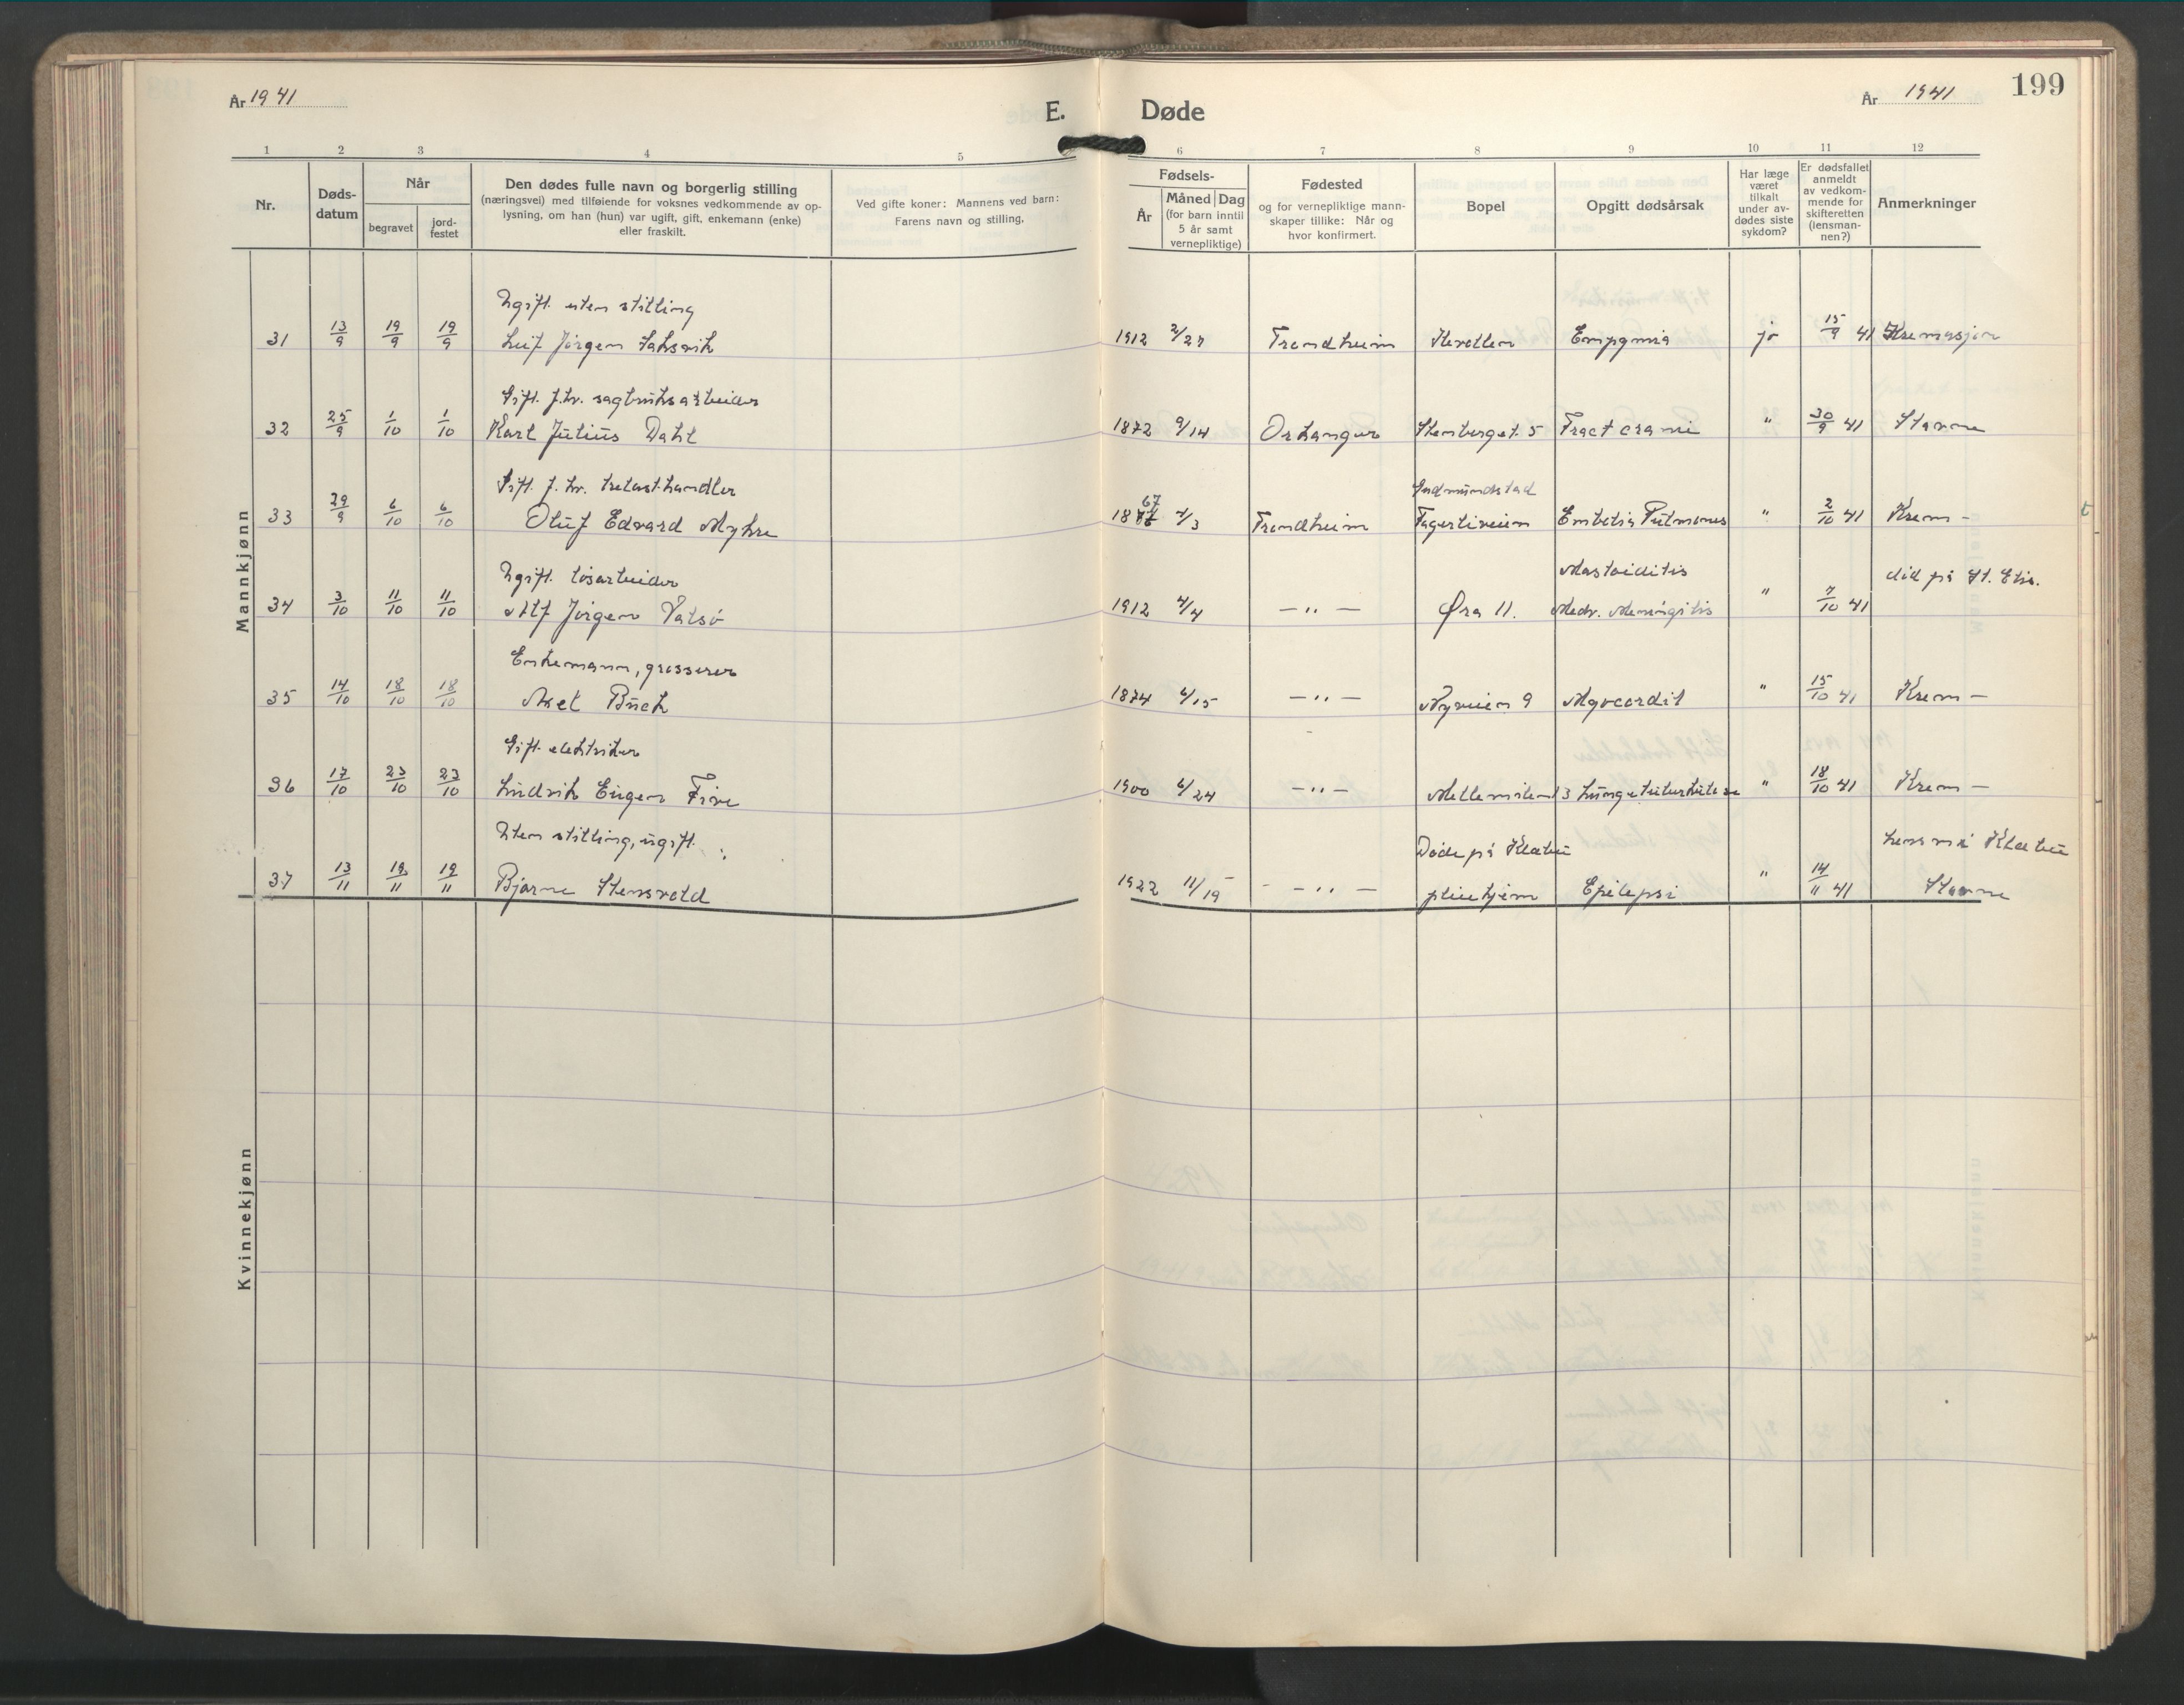 År 1941
E.
Døde
År 1941
199
1 2 3 4 5 6 7 8 9 10 11 12
Nr.
Døds-
datum
Når
begravet
jord-
festet
Den dødes fulle navn og borgerlig stilling
(næringsvei) med tilføiende for voksnes vedkommende av op-
lysning, om han (hun) var ugift, gift, enkemann (enke)
eller fraskilt.
Ved gifte koner: Mannens ved barn:
Farens navn og stilling.
Fødsels-
År
Måned Dag
(for barn inntil
5 år samt
vernepliktige)
Fødested
og for vernepliktige mann-
skaper tillike: Når og
hvor konfirmert.
Bopel
Opgitt dødsårsak
Har læge
været
tilkalt
under av-
dødes siste
sykdom?
Er dødsfallet
anmeldt
av vedkom-
mende for
skifteretten
(lensman-
nen?)
Anmerkninger
Mannkjønn
Ugift. uten stilling
31 13/9 19/9 19/9 Leif Jørgen 1912 2/27 Trondheim Empyma ja 15/9 41 Kremasjon
Gift. f.hv. sagbruksarbeider
32 25/9 1/10 1/10 Karl Julius Dahl 1872 9/14 Orkanger Stenberget. 5 Fract cranii " 30/9 41 Stavne
Gift. f. hv. trelasthandler
33 29/9 6/10 6/10 Oluf Edvard Myhre 1867 7/3 Trondheim Fagerliveien Embolia Pulmones " 2/10 41 Krem –
Ugift. løsarbeider Mastoiditis død på St. Elis.
34 3/10 11/10 11/10 Alf Jørgen Valsø 1912 4/4 – " – Øra 11. Medv. Meningitis " 7/10 41
Enkemann, grosserer
35 14/10 18/10 18/10 Axel Buch 1874 6/15 – " – Nyveien 9 Myocardit " 15/10 41 Krem –
Gift. elektriker
36 17/10 23/10 23/10 Ludvik Eugen 1900 6/24 – " – Mellemila 13 Lungetuberkulose " 18/10 41 Krem –
Uten stilling, ugift. Døde på Klæbu Lensm i Klæbu
37 13/11 19/11 19/11 Bjarne Stensvold 1922 11/19 – " – pleiehjem Epilepsi " 14/11 41 Stavne
Kvinnekjønn